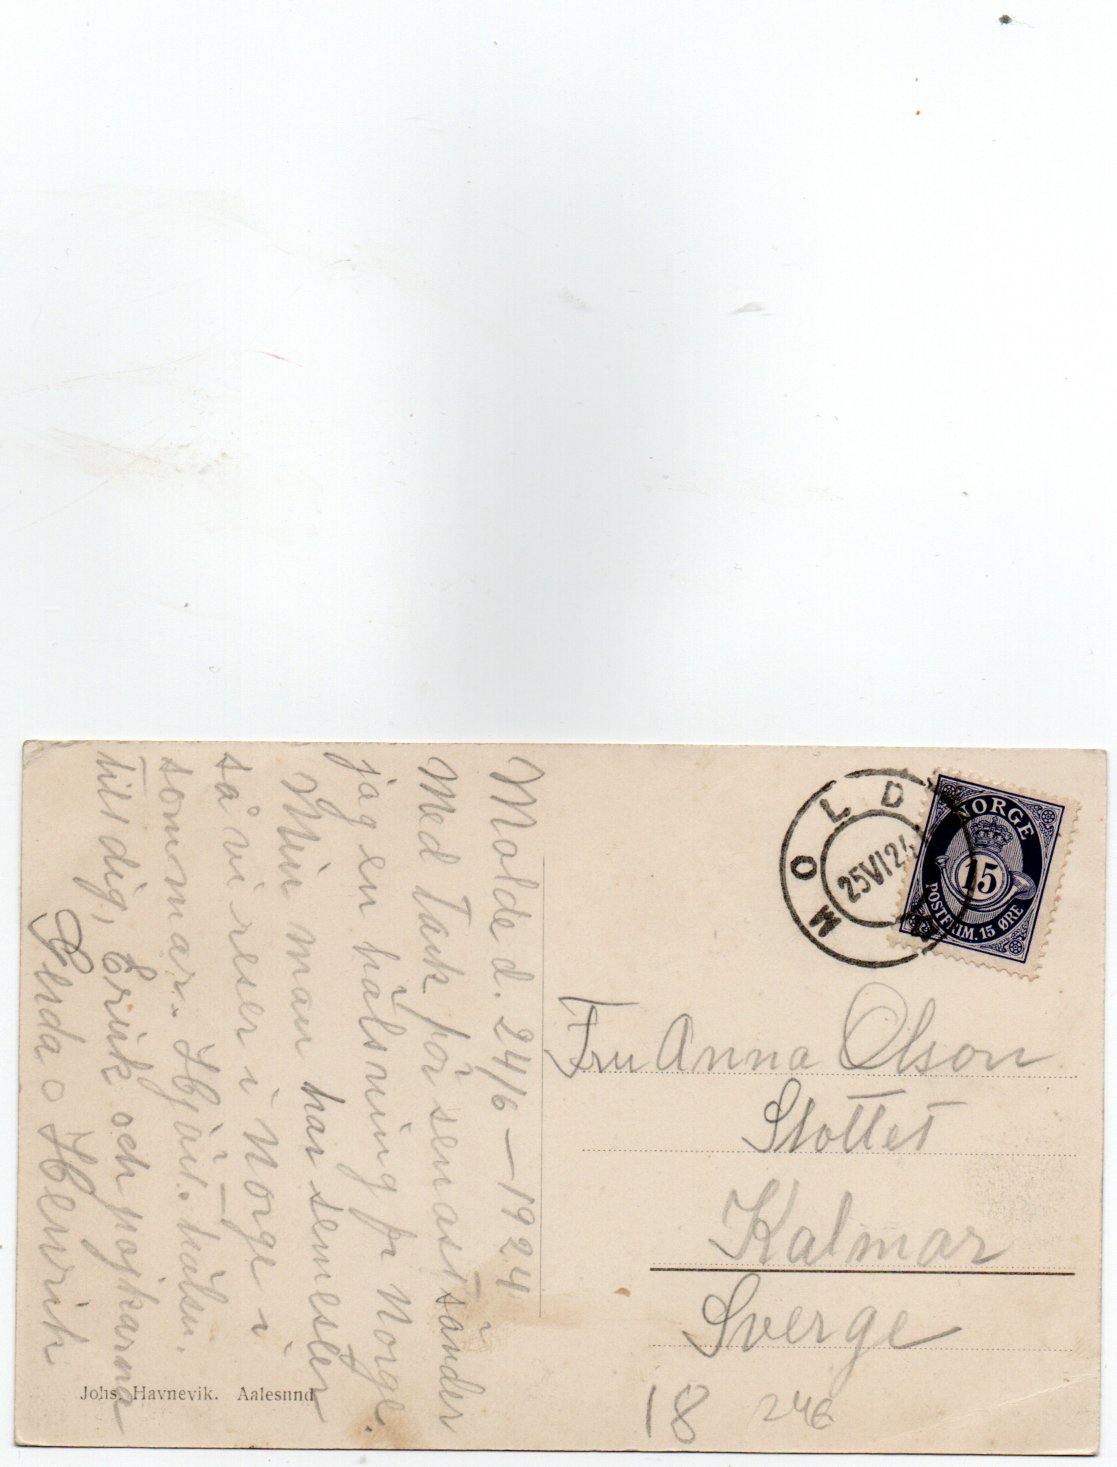 Molde d. 24/6 — 1924
Med Tack för senast sänder
jag en hälsning fr Norge.
Min man har semester
så vi reser i Norge i
sommar. Hjärt. häls.
till dig, Erik och pojkarna
Gerda o Henrik
Johs. Havnevik. Aalesund
MOLDE
25 VI 24
NORGE
15
POSTFRIM. 15 ØRE
Fru Anna Olson
Slottet
Kalmar
Sverge
18
246